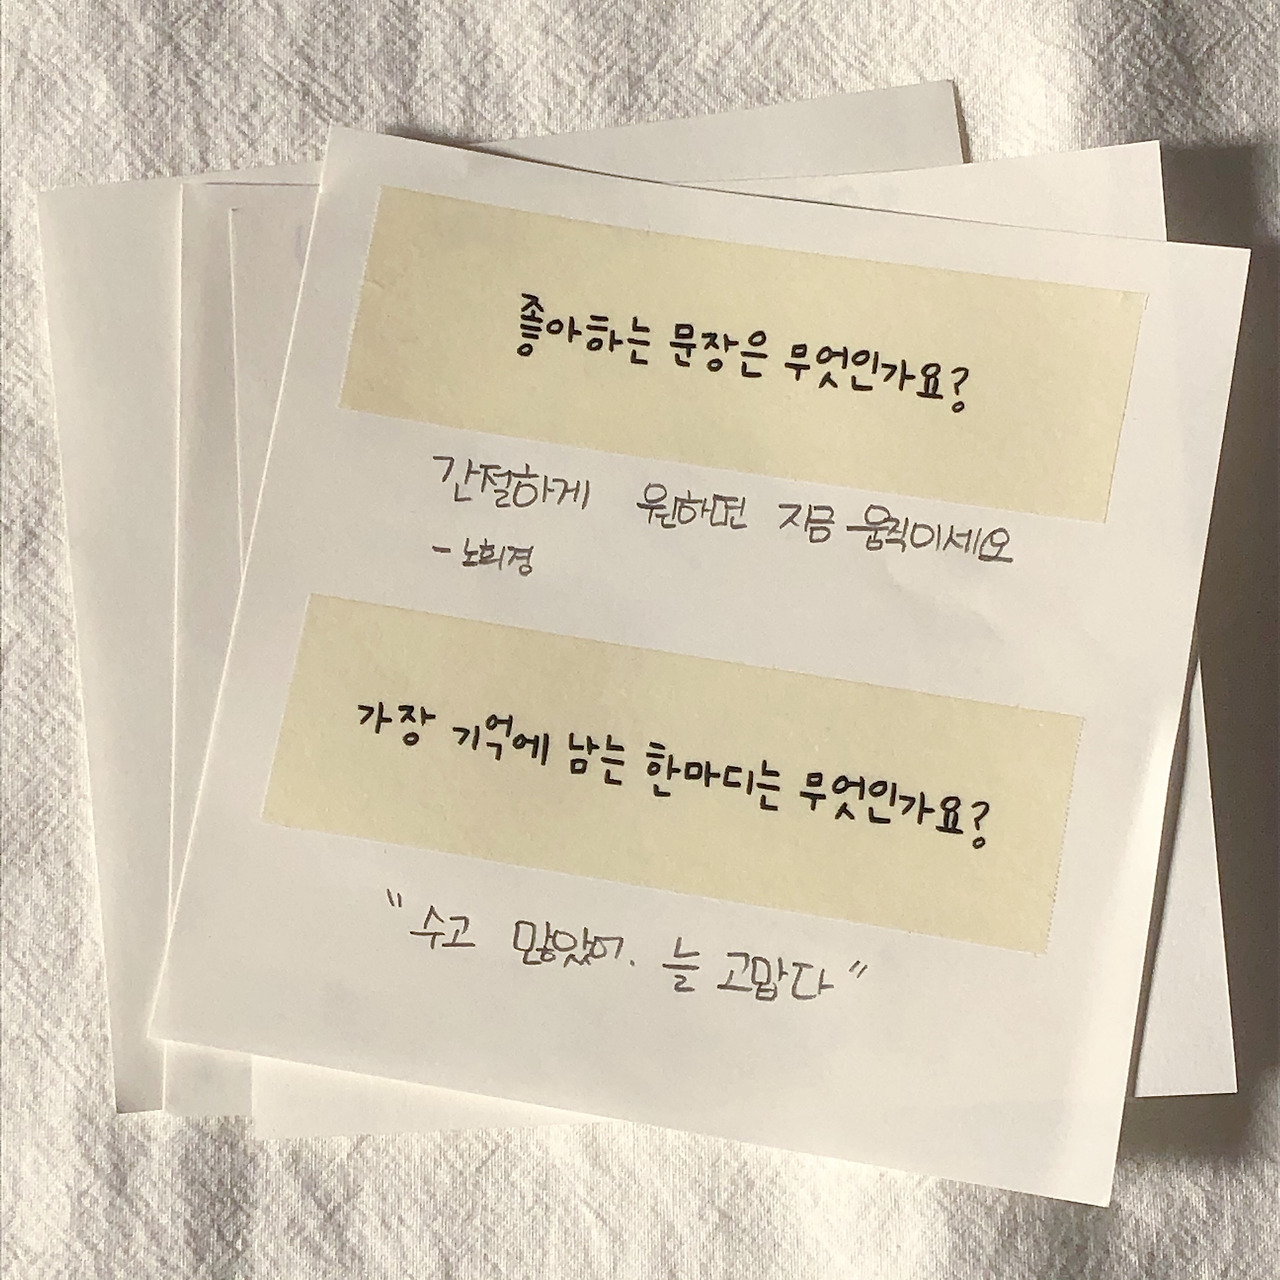 좋아하는 문장은 무엇인가요?
간절하게 원하면 지금 움직이세요
- 노희경
가장 기억에 남는 한마디는 무엇인가요?
"수고 많았어. 늘 고맙다"